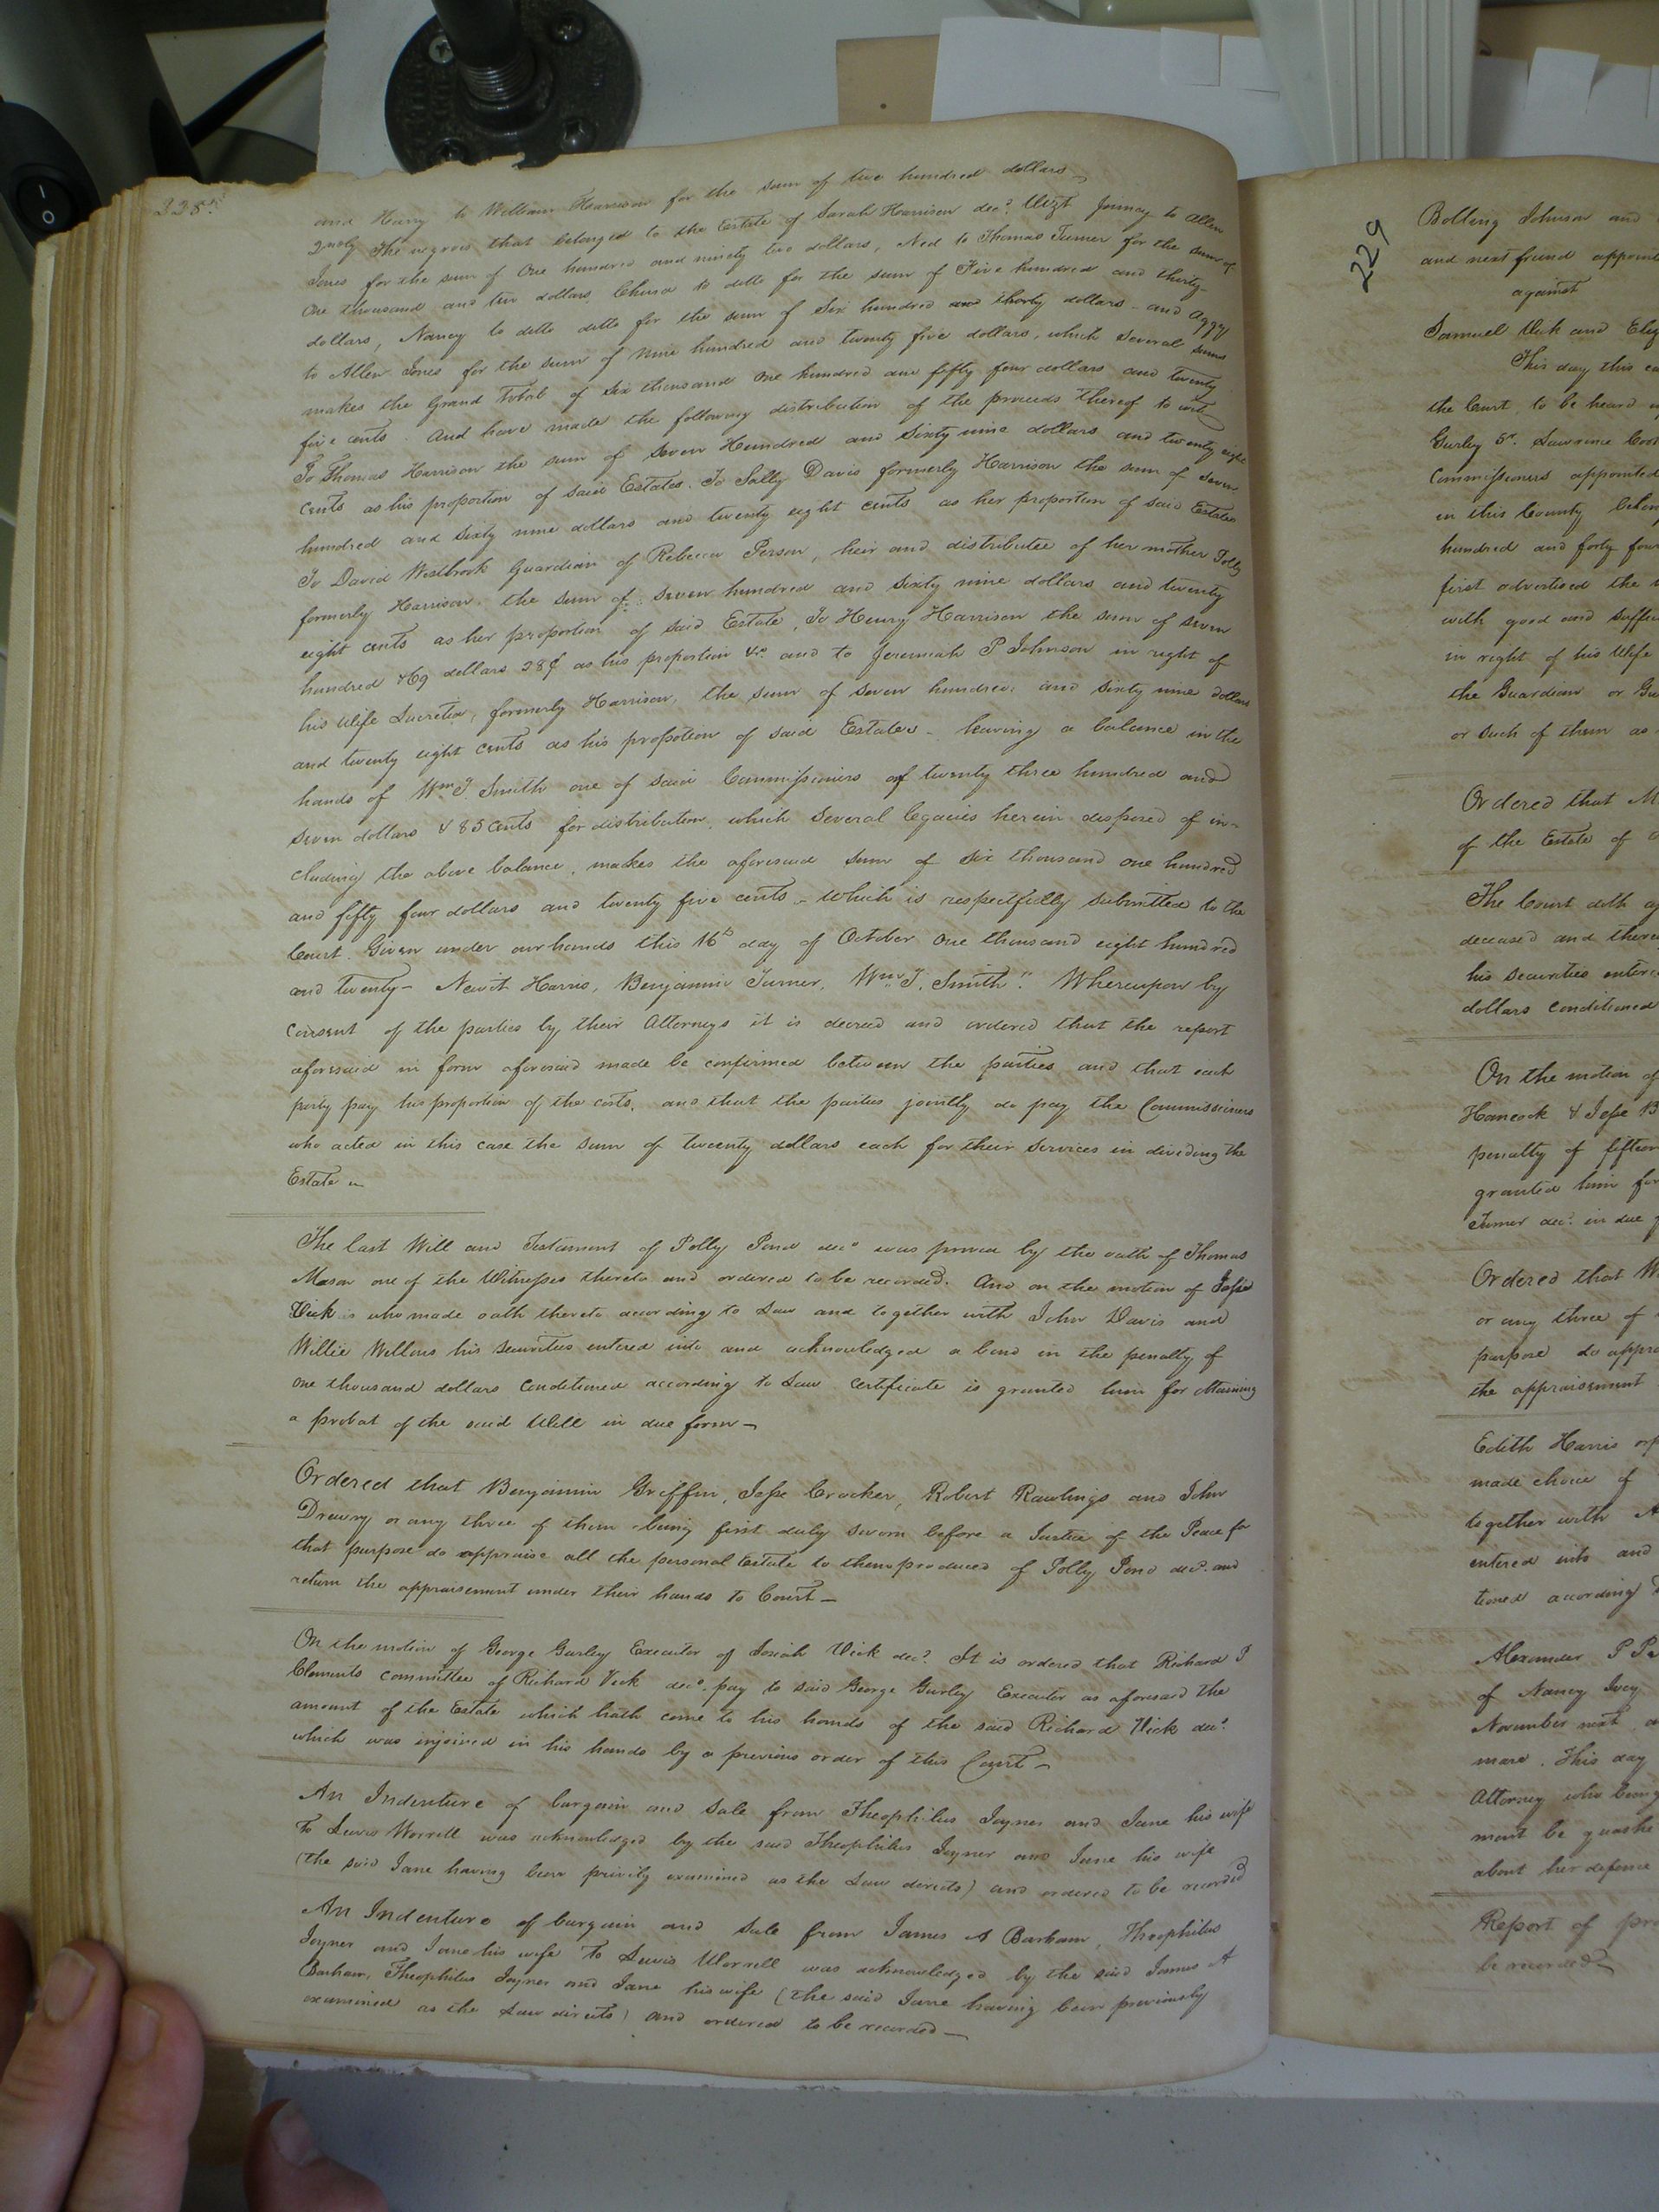 228
and Harry to William Harrison for the sum of two hundred dollars
2ndly The negroes that belonged to the Estate of Sarah Harrison decd. Vizt. to Allen
Jones for the sum of One hundred and ninety two dollars, Ned to Thomas Turner for the sum of
One thousand and ten dollars, to ditto for the sum of Five hundred and thirty
dollars, Nancy to ditto ditto for the sum of Six hundred and thirty dollars - and Aggy
to Allen Jones for the sum of nine hundred and twenty five dollars, which several sums
makes the Grand Total of six thousand one hundred and fifty four dollars and twenty
five cents. And have made the following distribution of the proceeds thereof to wit
To Thomas Harrison the sum of Seven Hundred and Sixty nine dollars and twenty eight
cents as his proportion of said Estates. To Sally Davis formerly Harrison the sum of Seven
hundred and sixty nine dollars and twenty eight cents as her proportion of said Estates
To David Westbrook Guardian of Rebecca Person, heir and distributee of her mother Polly
formerly Harrison, the sum of seven hundred and sixty nine dollars and twenty
eight cents as her proportion of said Estate, To Henry Harrison the sum of seven
hundred & 69 dollars 28¢ as his proportion &c. and to Jeremiah P Johnson in right of
his Wife Lucretia, formerly Harrison, the sum of seven hundred and sixty nine dollars
and twenty eight cents as his propotion of said Estates - leaving a balance in the
hands of Wm. J. Smith one of said Commissioners of twenty three hundred and
seven dollars & 85 Cents for distribution, which several legacies herein disposed of in-
cluding the above balance, makes the aforesaid sum of six thousand one hundred
and fifty four dollars and twenty five cents - which is respectfully submitted to the
Court. Given under our hands this 16th day of October One thousand eight hundred
and twenty - Newit Harris, Benjamin Turner, Wm. J. Smith." Whereupon by
consent of the parties by their Attorneys it is decreed and ordered that the report
aforesaid in form aforesaid made be confirmed between the parties and that each
party pay his proportion of the costs, and that the parties jointly do pay the Commissioners
who acted in this case the sum of twenty dollars each for their services in dividing the
Estate
The last Will and Testament of Polly Pond decd. was proved by the oath of Thomas
Mason one of the Witnesses thereto and ordered to be recorded. And on the motion of Jesse
Vick who made oath thereto according to Law and together with John Davis and
Willie his securities entered into and acknowledged a bond in the penalty of
one thousand dollars Conditioned according to Law certificate is granted him for obtaining
a probat of the said Will in due form -
Ordered that Benjamin Griffin, Jesse Crocker, Robert Rawlings and John
Drewry or any three of them being first duly sworn before a Justice of the Peace for
that purpose do appraise all the personal Estate to them produced of Polly Pond decd. and
return the appraisement under their hands to Court -
On the motion of George Gurley Executor of Josiah Vick decd. It is ordered that Richard P
Clements committee of Richard Vick decd. pay to said George Gurley Executor as aforesaid the
amount of the Estate which hath come to his hands of the said Richard Vick decd.
which was injoined in his hands by a previous order of this Court -
An Indenture of bargain and sale from Theophilus Joyner and Jane his wife
To Lewis Worrell was acknowledged by the said Theophilus Joyner and Jane his wife
(the said Jane having been privily examined as the Law directs) and ordered to be recorded
An Indenture of bargain and sale from James A Barham, Theophilus
Joyner and Jane his wife To Lewis Worrell was acknowledged by the said James A
Barham, Theophilus Joyner and Jane his wife (the said Jane having been previously
examined as the Law directs) and ordered to be recorded -
229
Bolling Johnson and
and next friend
against
Samuel Vick and
This day this
the Court, to be heard
Gurley Sr. Lawrence
Commissioners appointed
in this County
hundred and forty four
first advertised the
with good and
in right of his Wife
the Guardian or
or such of them as
Ordered that
of the Estate of
The Court doth
deceased and
his securities
dollars conditioned
On the motion of
Hancock & Jesse B
penalty of fifteen
granted him for
Turner decd. in due
Ordered that
or any three of
purpose do
the appraisement
Edith Harris
made choice of
together with
entered into and
tioned according
Alexander P
of Nancy Ivey
November next
more. This day
Attorney who being
ment be
about her defence
Report of
be recorded